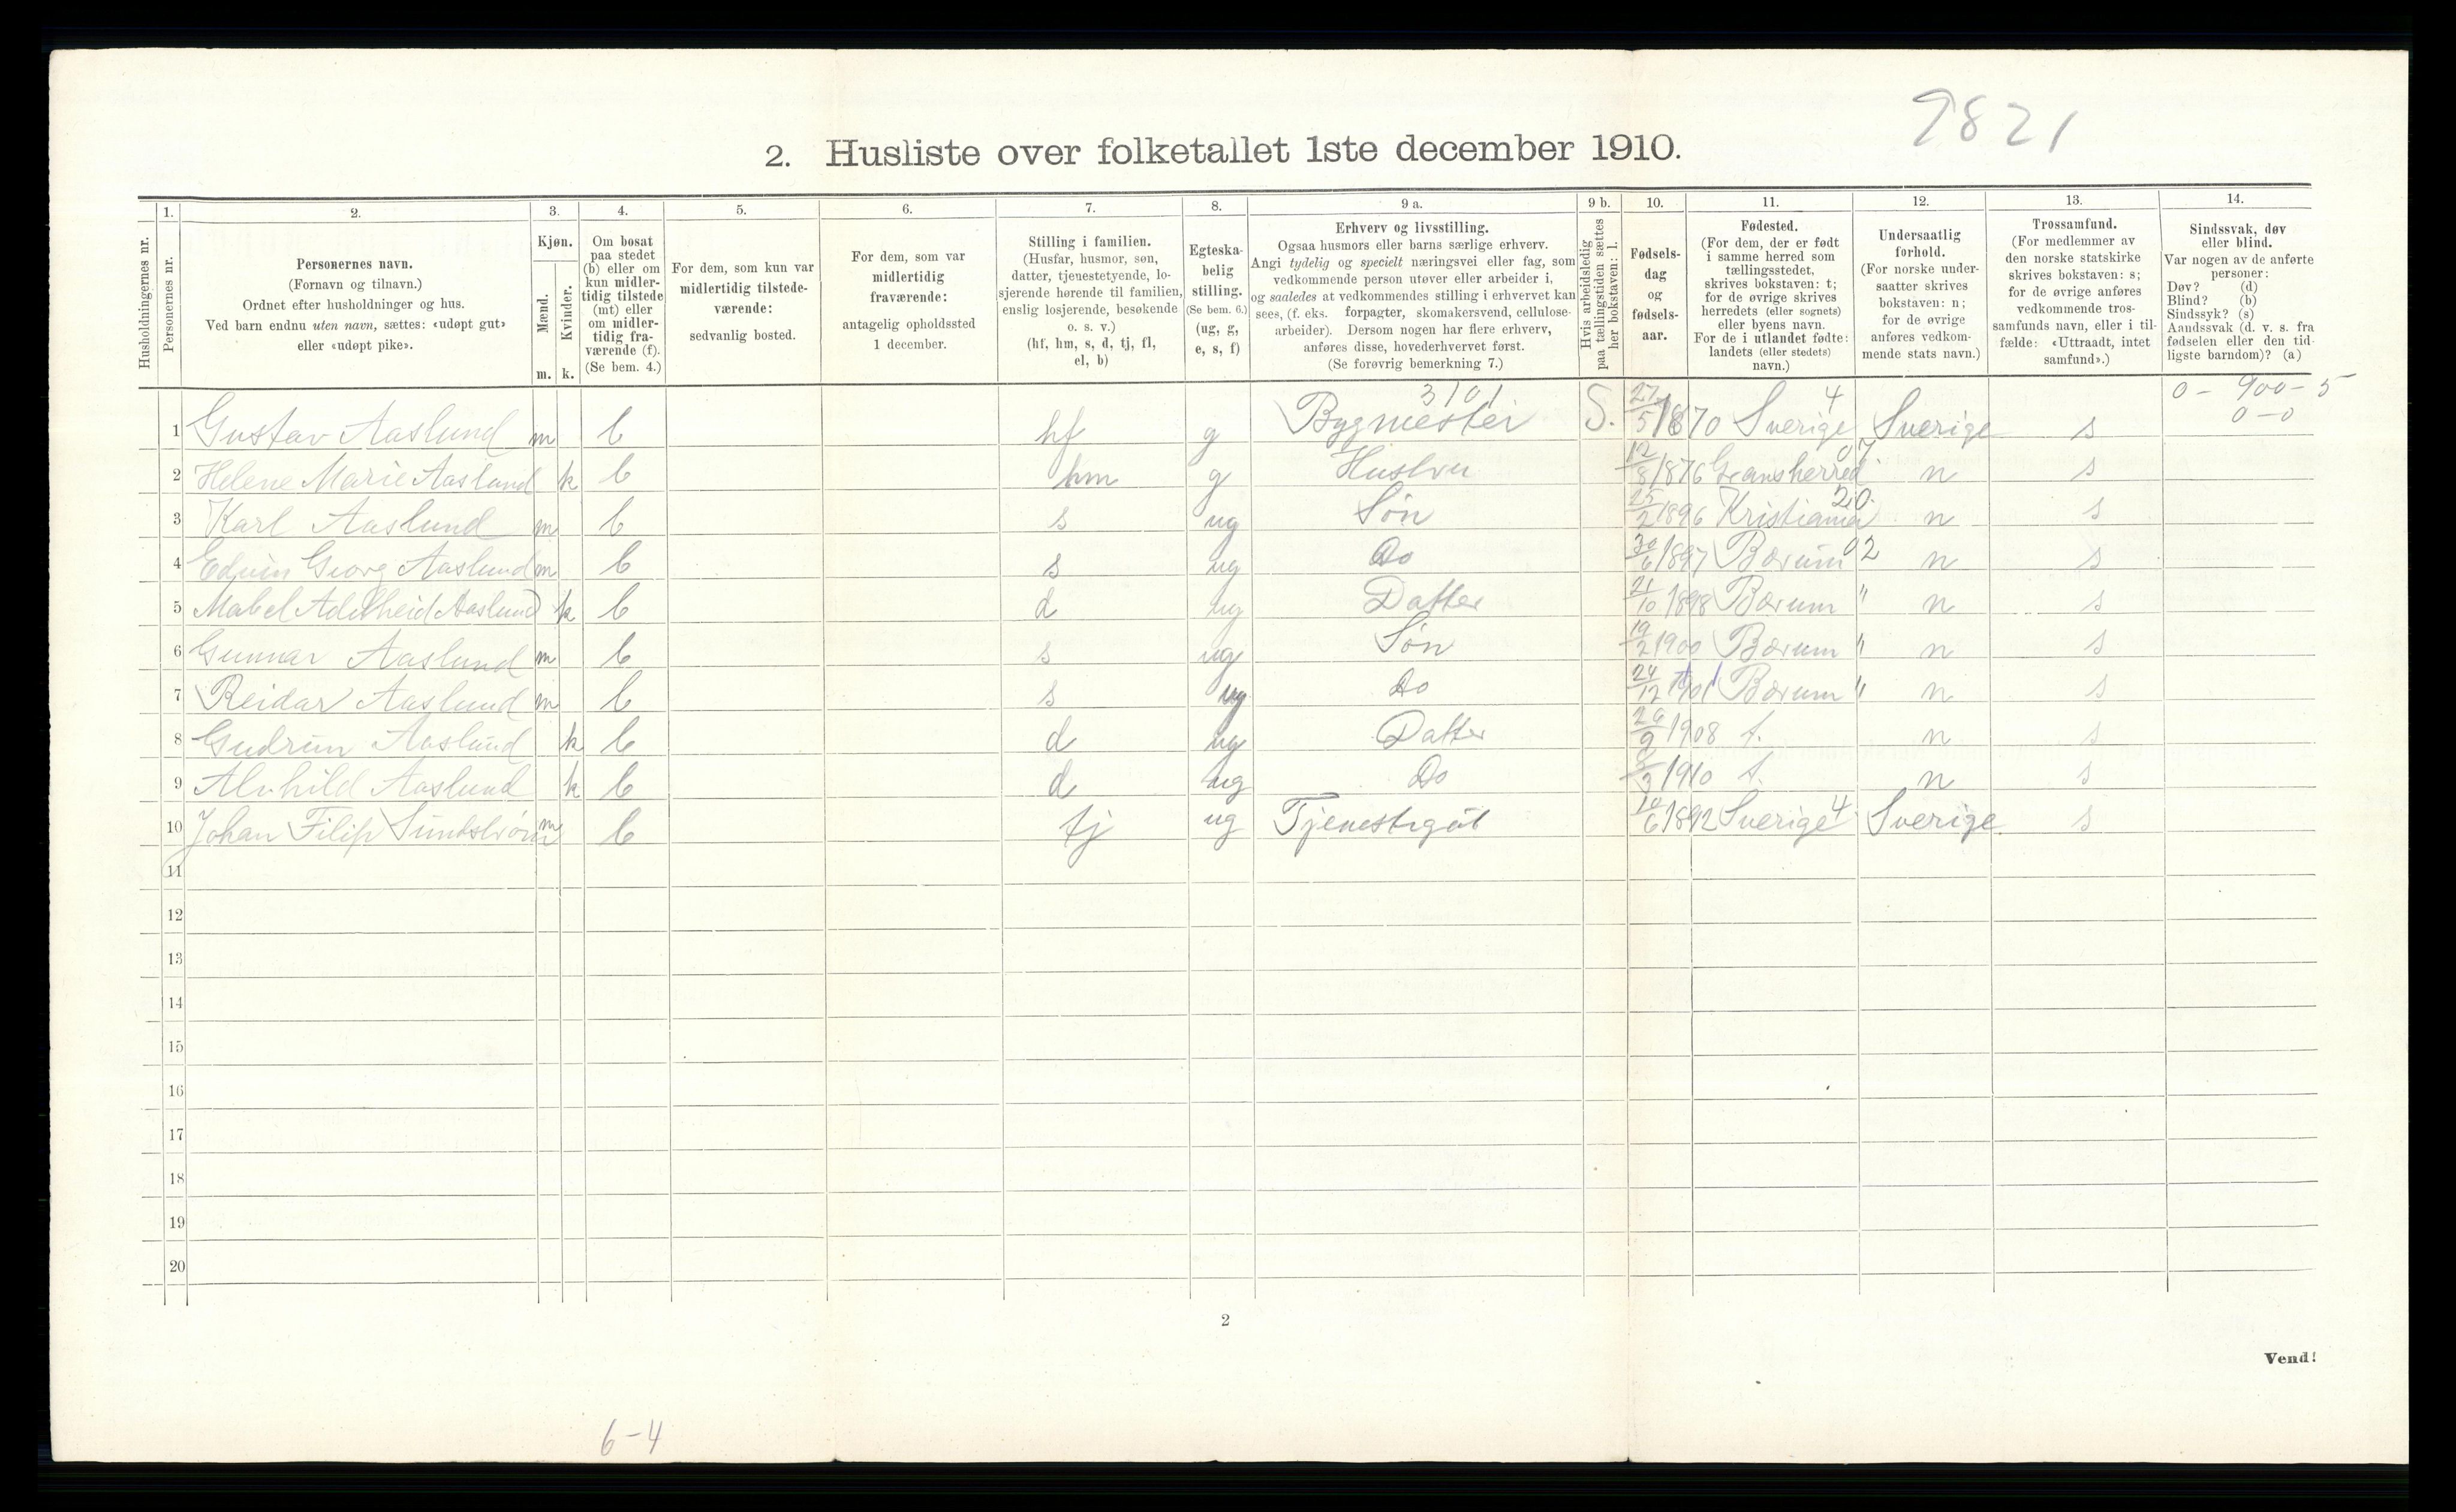 9821
2. Husliste over folketallet 1ste december 1910.
Husholdningernes nr.
1.
Personernes nr.
2.
Personernes navn.
(Fornavn og tilnavn.)
Ordnet efter husholdninger og hus.
Ved barn endnu uten navn, sættes: «udøpt gut»
eller «udøpt pike».
3.
Kjøn.
Mænd.
Kvinder.
m. k.
4.
Om bosat
paa stedet
(b) eller om
kun midler-
tidig tilstede
(mt) eller
om midler-
tidig fra-
værende (f).
(Se bem. 4.)
5.
For dem, som kun var
midlertidig tilstede-
værende:
sedvanlig bosted.
6.
For dem, som var
midlertidig
fraværende:
antagelig opholdssted
1 december.
7.
Stilling i familien.
(Husfar, husmor, søn,
datter, tjenestetyende, lo-
sjerende hørende til familien,
enslig losjerende, besøkende
o. s. v.)
(hf, hm, s, d, tj, fl,
el, b)
8.
Egteska-
belig
stilling.
(Se bem. 6.)
(ug, g,
e, s, f)
9 a.
Erhverv og livsstilling.
Ogsaa husmors eller barns særlige erhverv.
Angi tydelig og specielt næringsvei eller fag, som
vedkommende person utøver eller arbeider i,
og saaledes at vedkommendes stilling i erhvervet kan
sees, (f. eks. forpagter, skomakersvend, cellulose-
arbeider). Dersom nogen har flere erhverv,
anføres disse, hovederhvervet først.
(Se forøvrig bemerkning 7.)
9 b.
Hvis arbeidsledig
paa tællingstiden sættes
her bokstaven: l.
10.
Fødsels-
dag
og
fødsels-
aar.
11.
Fødested.
(For dem, der er født
i samme herred som
tællingsstedet,
skrives bokstaven: t;
for de øvrige skrives
herredets (eller sognets)
eller byens navn.
For de i utlandet fødte:
landets (eller stedets)
navn.)
12.
Undersaatlig
forhold.
(For norske under-
saatter skrives
bokstaven: n;
for de øvrige
anføres vedkom-
mende stats navn.)
13.
Trossamfund.
(For medlemmer av
den norske statskirke
skrives bokstaven: s;
for de øvrige anføres
vedkommende tros-
samfunds navn, eller i til-
fælde: «Uttraadt, intet
samfund».)
14.
Sindssvak, døv
eller blind.
Var nogen av de anførte
personer:
Døv? (d)
Blind? (b)
Sindssyk? (s)
Aandssvak (d. v. s. fra
fødselen eller den tid-
ligste barndom)? (a)
3101 4 0 - 900 - 5
0-0
1 Gustav Aaslund m b hf g Bygmester S. 27/5 1870 Sverige Sverige s
2 Helene Marie Aaslund k b hm g Hustru 12/8 1876 Gransherred 07 n s
3 Karl Aaslund m b s ug Søn 25/2 1896 Kristiania 20 n s
4 Edvin Georg Aaslund m b s ug Do 30/6 1897 Bærum 02 n s
5 Mabel Adelheid Aaslund k b d ug Datter 21/10 1898 Bærum " n s
6 Gunnar Aaslund m b s ug Søn 19/2 1900 Bærum " n s
7 Reidar Aaslund m b s ug Do 24/12 1901 Bærum " n s
8 Gudrun Aaslund k b d ug Datter 29/9 1908 t. n s
9 Alvhild Aaslund k b d ug Do /3 1910 t. n s
10 Johan Filip Sundstrøm m b tj ug Tjenestegut 10/6 1892 Sverige 4 Sverige s
11
12
13
14
15
16
17
18
19
20
2
Vend!
6-4